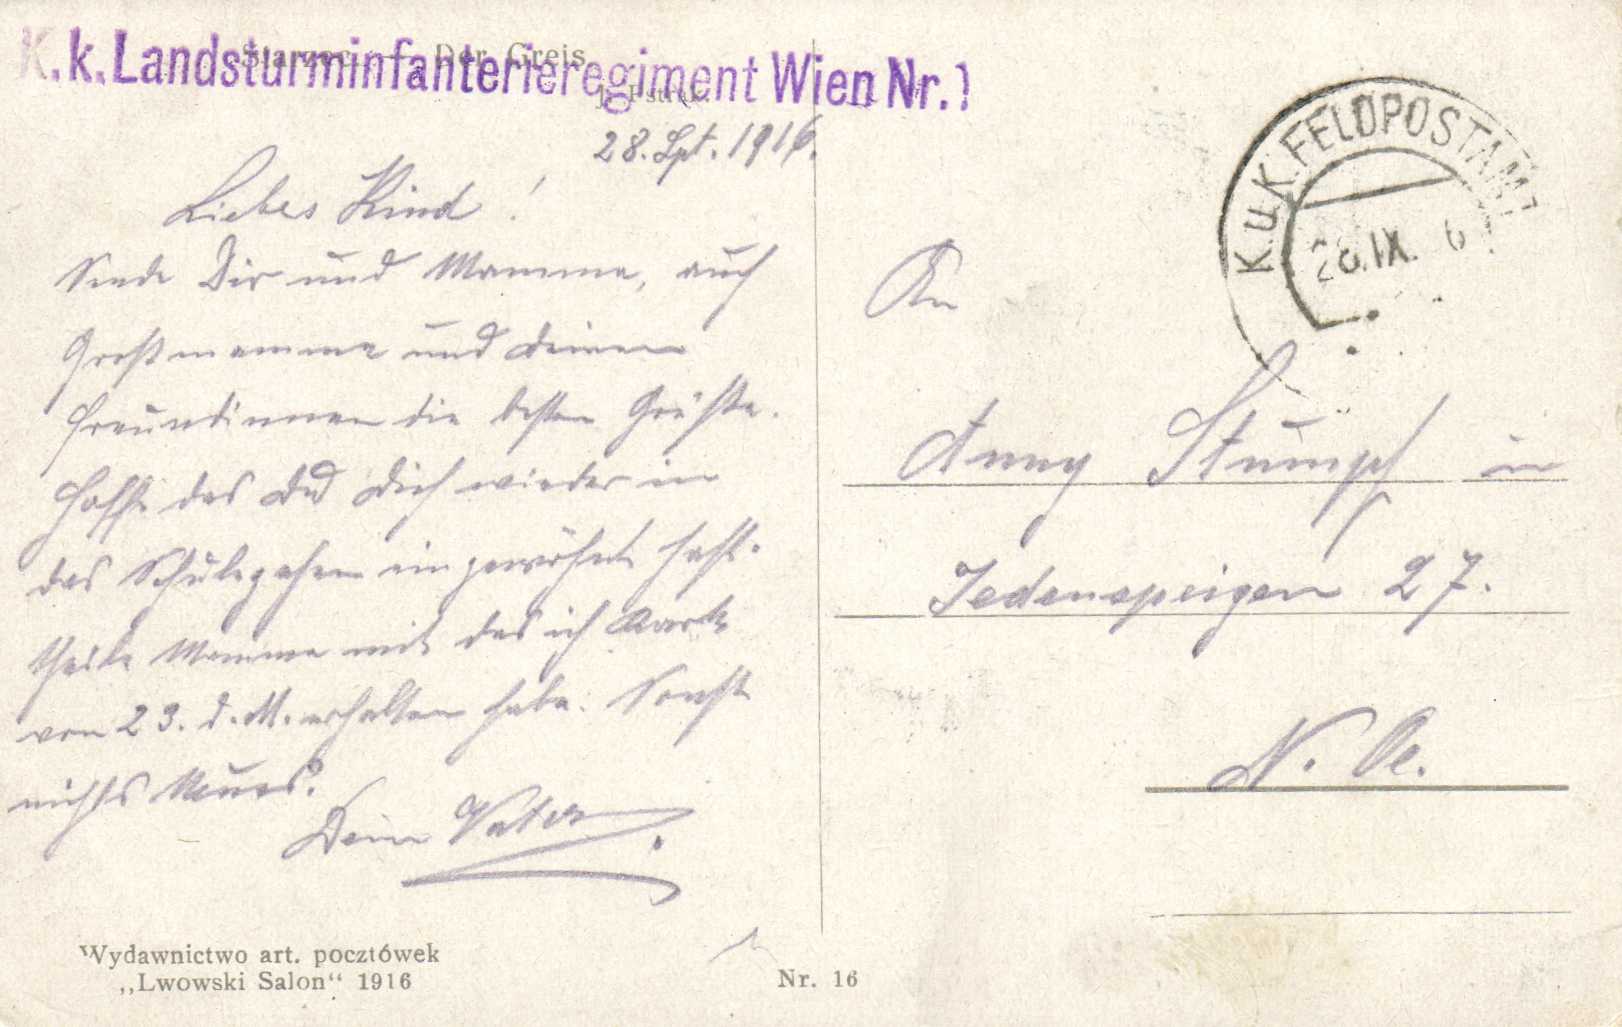 K.k. Landsturminfanterieregiment Wien Nr. 1
Starzec. — Der Greis.
28. Spt. 1916.
Liebes Kind!
Sende Dir und Mamma, auch
Großmamma und deinen
Freundinnen die besten Grüße.
Hoffe das Du Dich wieder in
das Schulegehen eingewöhnt hast.
theile Mamma mit das ich Karte
von 23. d. M. erhalten habe. Sonst
nichts Neues.
Dein Vater.
K.u.K. FELDPOSTAMT
28. IX. 6
An
Anny Stumpf in
Jedenspeigen 27.
N. Oe.
Wydawnictwo art. pocztówek
„Lwowski Salon“ 1916
Nr. 16